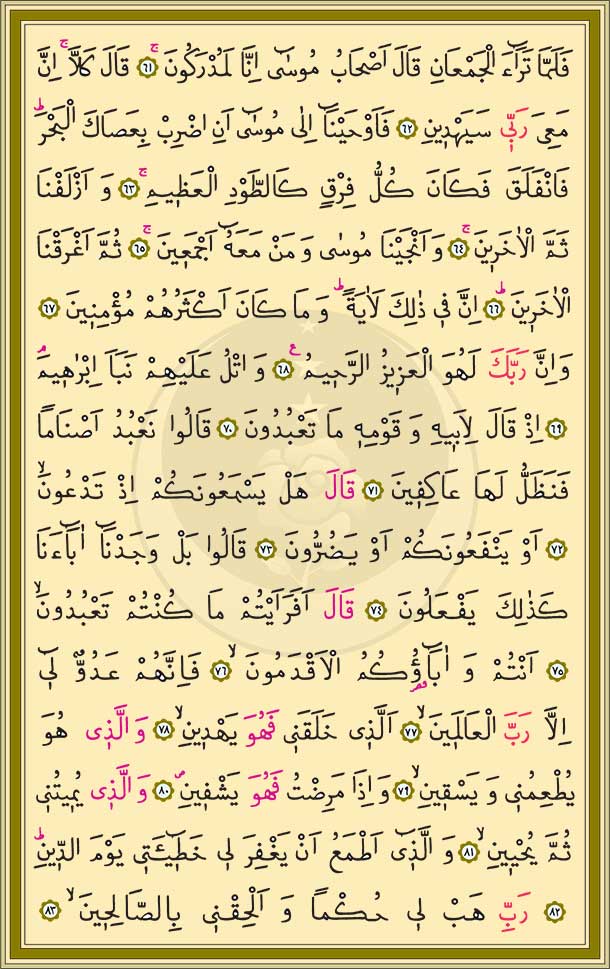 فَلَمَّا تَرَٓاءَ الْجَمْعَانِ قَالَ اَصْحَابُ مُوسٰٓى اِنَّا لَمُدْرَكُونَۚ ﴿٦١﴾ قَالَ كَلَّاۚ اِنَّ
مَعِيَ رَبّ۪ي سَيَهْد۪ينِ ﴿٦٢﴾ فَاَوْحَيْنَٓا اِلٰى مُوسٰٓى اَنِ اضْرِبْ بِعَصَاكَ الْبَحْرَۜ
فَانْفَلَقَ فَكَانَ كُلُّ فِرْقٍ كَالطَّوْدِ الْعَظ۪يمِۚ ﴿٦٣﴾ وَاَزْلَفْنَا
ثَمَّ الْاٰخَر۪ينَۚ ﴿٦٤﴾ وَاَنْجَيْنَا مُوسٰى وَمَنْ مَعَهُٓ اَجْمَع۪ينَۚ ﴿٦٥﴾ ثُمَّ اَغْرَقْنَا
الْاٰخَر۪ينَۜ ﴿٦٦﴾ اِنَّ ف۪ي ذٰلِكَ لَاٰيَةًۜ وَمَا كَانَ اَكْثَرُهُمْ مُؤْمِن۪ينَ ﴿٦٧﴾
وَاِنَّ رَبَّكَ لَهُوَ الْعَز۪يزُ الرَّح۪يمُ۟ ﴿٦٨﴾ وَاتْلُ عَلَيْهِمْ نَبَاَ اِبْرٰه۪يمَۢ
﴿٦٩﴾ اِذْ قَالَ لِاَب۪يهِ وَقَوْمِه۪ مَا تَعْبُدُونَ ﴿٧٠﴾ قَالُوا نَعْبُدُ اَصْنَامًا
فَنَظَلُّ لَهَا عَاكِف۪ينَ ﴿٧١﴾ قَالَ هَلْ يَسْمَعُونَكُمْ اِذْ تَدْعُونَۙ
﴿٧٢﴾ اَوْ يَنْفَعُونَكُمْ اَوْ يَضُرُّونَ ﴿٧٣﴾ قَالُوا بَلْ وَجَدْنَٓا اٰبَٓاءَنَا
كَذٰلِكَ يَفْعَلُونَ ﴿٧٤﴾ قَالَ اَفَرَاَيْتُمْ مَا كُنْتُمْ تَعْبُدُونَۙ
﴿٧٥﴾ اَنْتُمْ وَاٰبَٓاؤُ۬كُمُ الْاَقْدَمُونَۙ ﴿٧٦﴾ فَاِنَّهُمْ عَدُوٌّ ل۪ٓي
اِلَّا رَبَّ الْعَالَم۪ينَۙ ﴿٧٧﴾ اَلَّذ۪ي خَلَقَن۪ي فَهُوَ يَهْد۪ينِۙ ﴿٧٨﴾ وَالَّذ۪ي هُوَ
يُطْعِمُن۪ي وَيَسْق۪ينِۙ ﴿٧٩﴾ وَاِذَا مَرِضْتُ فَهُوَ يَشْف۪ينِۖ ﴿٨٠﴾ وَالَّذ۪ي يُم۪يتُن۪ي
ثُمَّ يُحْي۪ينِۙ ﴿٨١﴾ وَالَّذ۪ٓي اَطْمَعُ اَنْ يَغْفِرَ ل۪ي خَط۪ٓيـَٔت۪ي يَوْمَ الدّ۪ينِۜ
﴿٨٢﴾ رَبِّ هَبْ ل۪ي حُكْمًا وَاَلْحِقْن۪ي بِالصَّالِح۪ينَۙ ﴿٨٣﴾